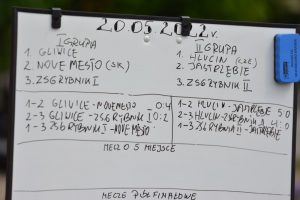 20.05.2022 r.
I GRUPA
1. GLIWICE
2. NOVE MESTO (SK)
3. ZSG RYBNIK I
II GRUPA
1. HLUCIN (CZE)
2. JASTRZĘBIE
3. ZSG RYBNIK II
1-2 GLIWICE - NOVEMESTO 0:4
2-3 GLIWICE - ZSG RYBNIK I 0:2
1-3 ZSG RYBNIK I - NOVE MESTO
1-2 HLUCIN - JASTRZĘBIE 5:0
2-3 HLUCIN - ZSG RYBNIK II 4:0
1-3 ZSG RYBNIK II - JASTRZĘBIE
MECZ O 5 MIEJSCE
MECZE PÓŁFINAŁOWE